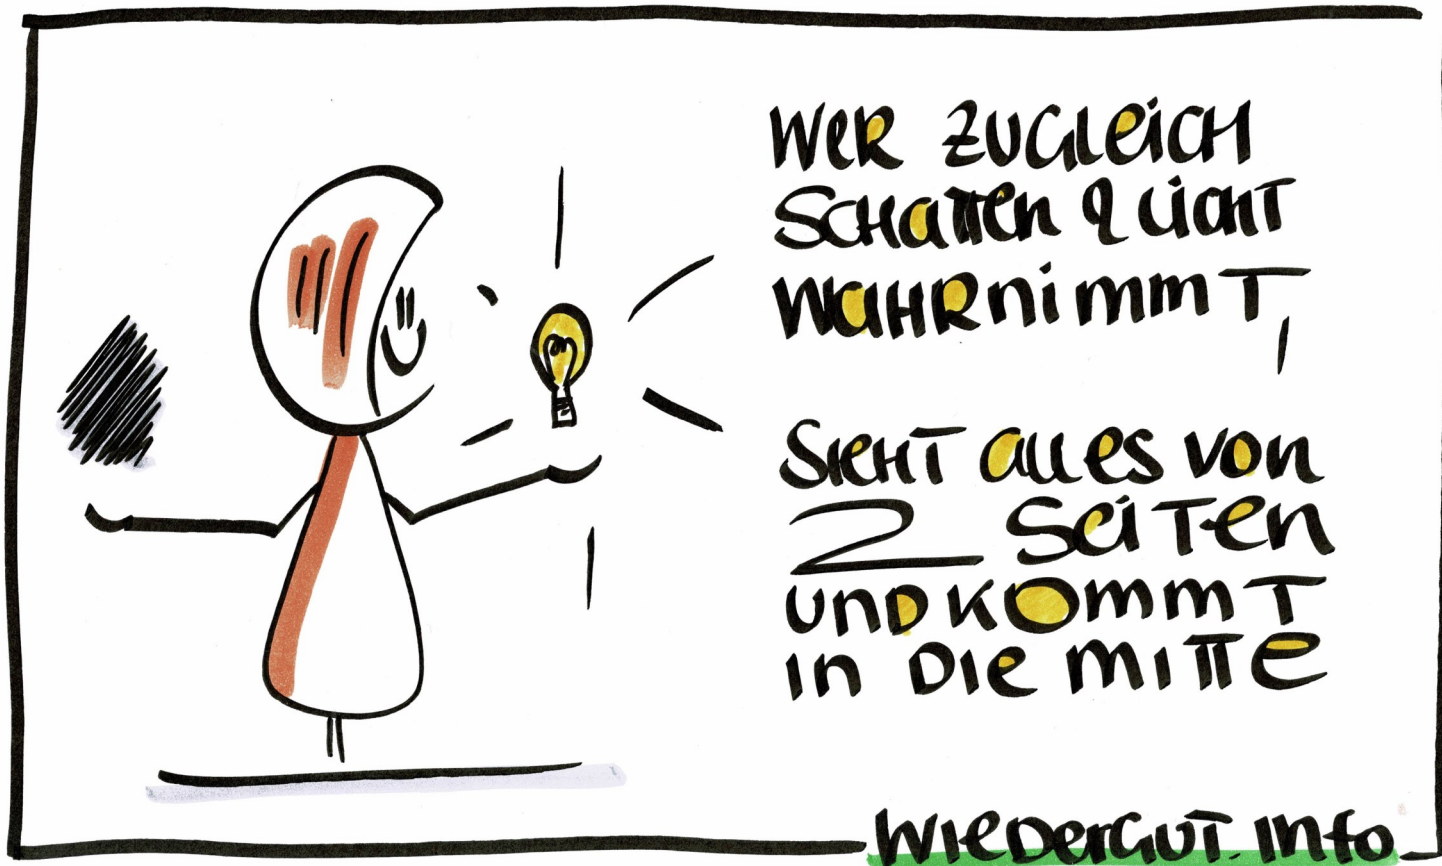 WER ZUGLEICH
SCHATTEN & LICHT
WAHRNIMMT,
SIEHT ALLES VON
2 SEITEN
UND KOMMT
IN DIE MITTE
WIEDERGUT.INFO